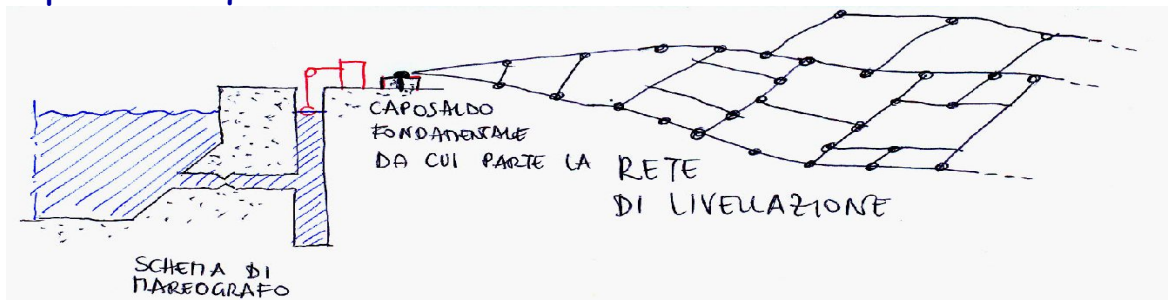 CAPOSALDO
FONDAMENTALE
DA CUI PARTE LA RETE
DI LIVELLAZIONE
SCHEMA DI
MAREOGRAFO